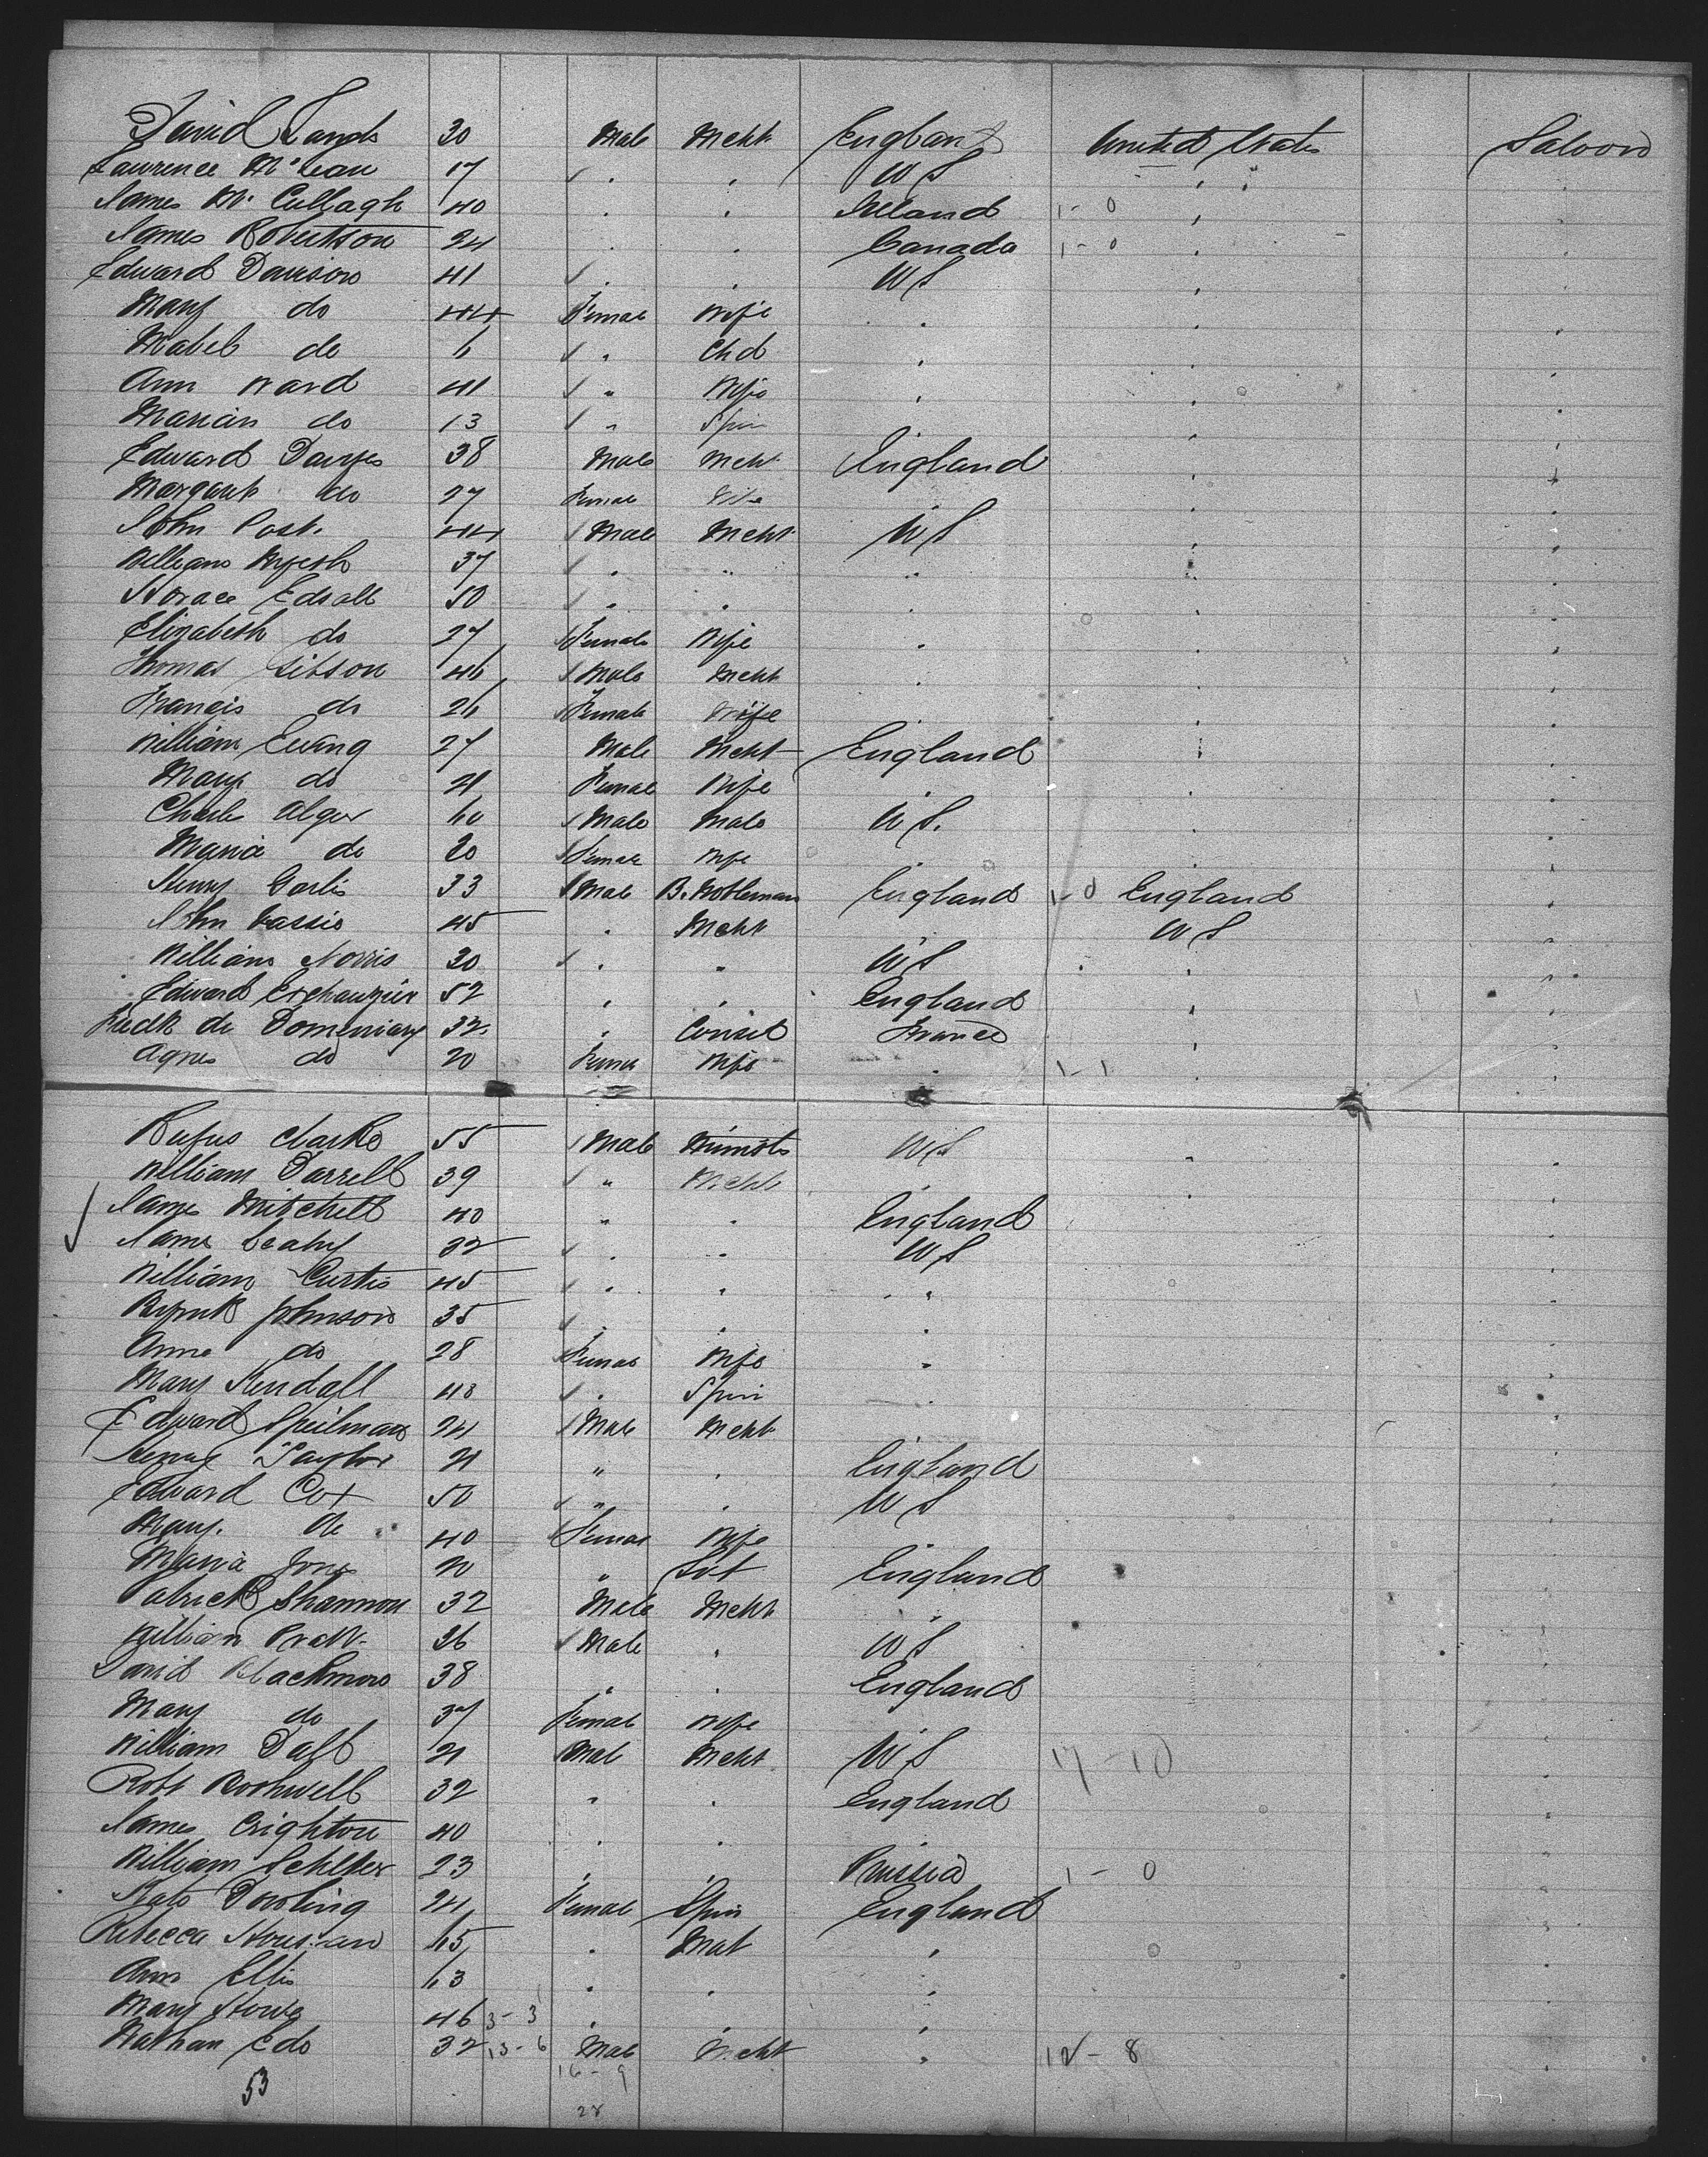 David Lands 30 Male Mcht England United States Saloon
Lawrence McLean 17 " " U S " "
James McCullagh 40 " " Ireland 1-0 " "
James Robertson 24 " " Canada 1-0 " "
Edward Davison 41 " " U S " "
Mary do 44 Female Wife " " "
Mabel do 6 " Chd " " "
Ann Ward 41 " Wife " " "
Marian do 13 " Spin " " "
Edward Davyes 38 Male Mcht England " "
Margaret do 27 Female Wife " "
John Post 44 Male Mcht U S " "
William 37 " " " " "
Horace Edsall 50 " " " " "
Elizabeth do 27 Female Wife " " "
Thomas Gibson 46 Male Mcht " " "
Francis do 26 Female Wife " " "
William Ewing 27 Male Mcht England " "
Mary do 21 Female Wife " "
Charles Alger 60 Male Male U S. " "
Maria do 20 Female Wife " "
Henry 33 Male B. Nobleman England 1-0 England "
John Cassie 45 " Mcht U S "
William Norris 30 " " U S " "
Edward 52 " " England " "
Fredk de 32 " Consul France " "
Agnes do 20 Female Wife " 1-1 " "
Rufus Clarke 55 Male U S " "
William Darrell 39 " Mcht " " "
James Mitchell 40 " " England "
James Leahy 32 " " U S "
William Curtis 45 " " " "
Johnson 35 " " " "
Anna do 28 Female Wife " "
Mary Kendall 48 " Spin " "
Edward Speilman 24 Male Mcht " "
Henry Taylor 21 " " England "
Edward Cox 50 " " U S "
Mary do 40 Female Wife "
Maria Jones 20 " Svt England "
Patrick Shannon 32 Male Mcht " "
William Pratt 26 Male " U S "
David Blackmore 38 " " England "
Mary do 37 Female Wife "
William Daft 21 Male Mcht U S 17-10 "
Robt Rothwell 32 " " England "
James Crighton 40 " " " "
William 23 " " Prussia 1-0 "
Kate Dowling 24 Female Spin England "
Rebecca 65 " Mat " "
Ann Ellis 63 " " " "
Mary Howe 46 3-3 " " " "
Nathan 32 13-6 Male Mcht " 12-8 "
53 16-9
28